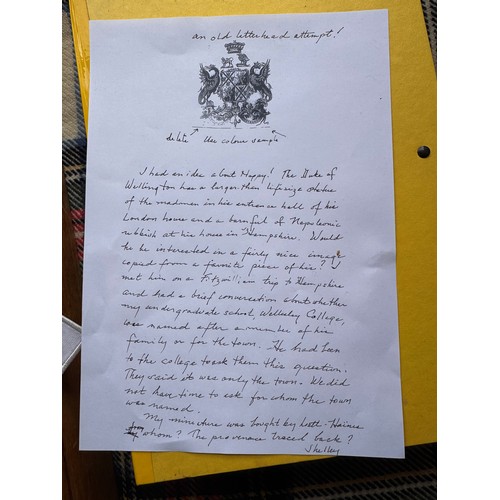 an old letterhead attempt!
delete use colour sample
I had an idea about Nappy! The Duke of
Wellington has a larger than lifesize statue
of the madman in his entrance hall of his
London house and a barnful of Napoleonic
rubbish at his house in Hampshire. Would
he be interested in a fairly nice image
copied from a favorite piece of his? I
met him on a Fitzwilliam trip to Hampshire
and had a brief conversation about whether
my undergraduate school, Wellesley College,
was named after a member of his
family or for the town. He had been
to the college to ask them this question.
They said it was only the town. We did
not have time to ask for whom the town
was named.
My miniature was bought by Lott-Haines
whom? The provenance traced back?
Shelley